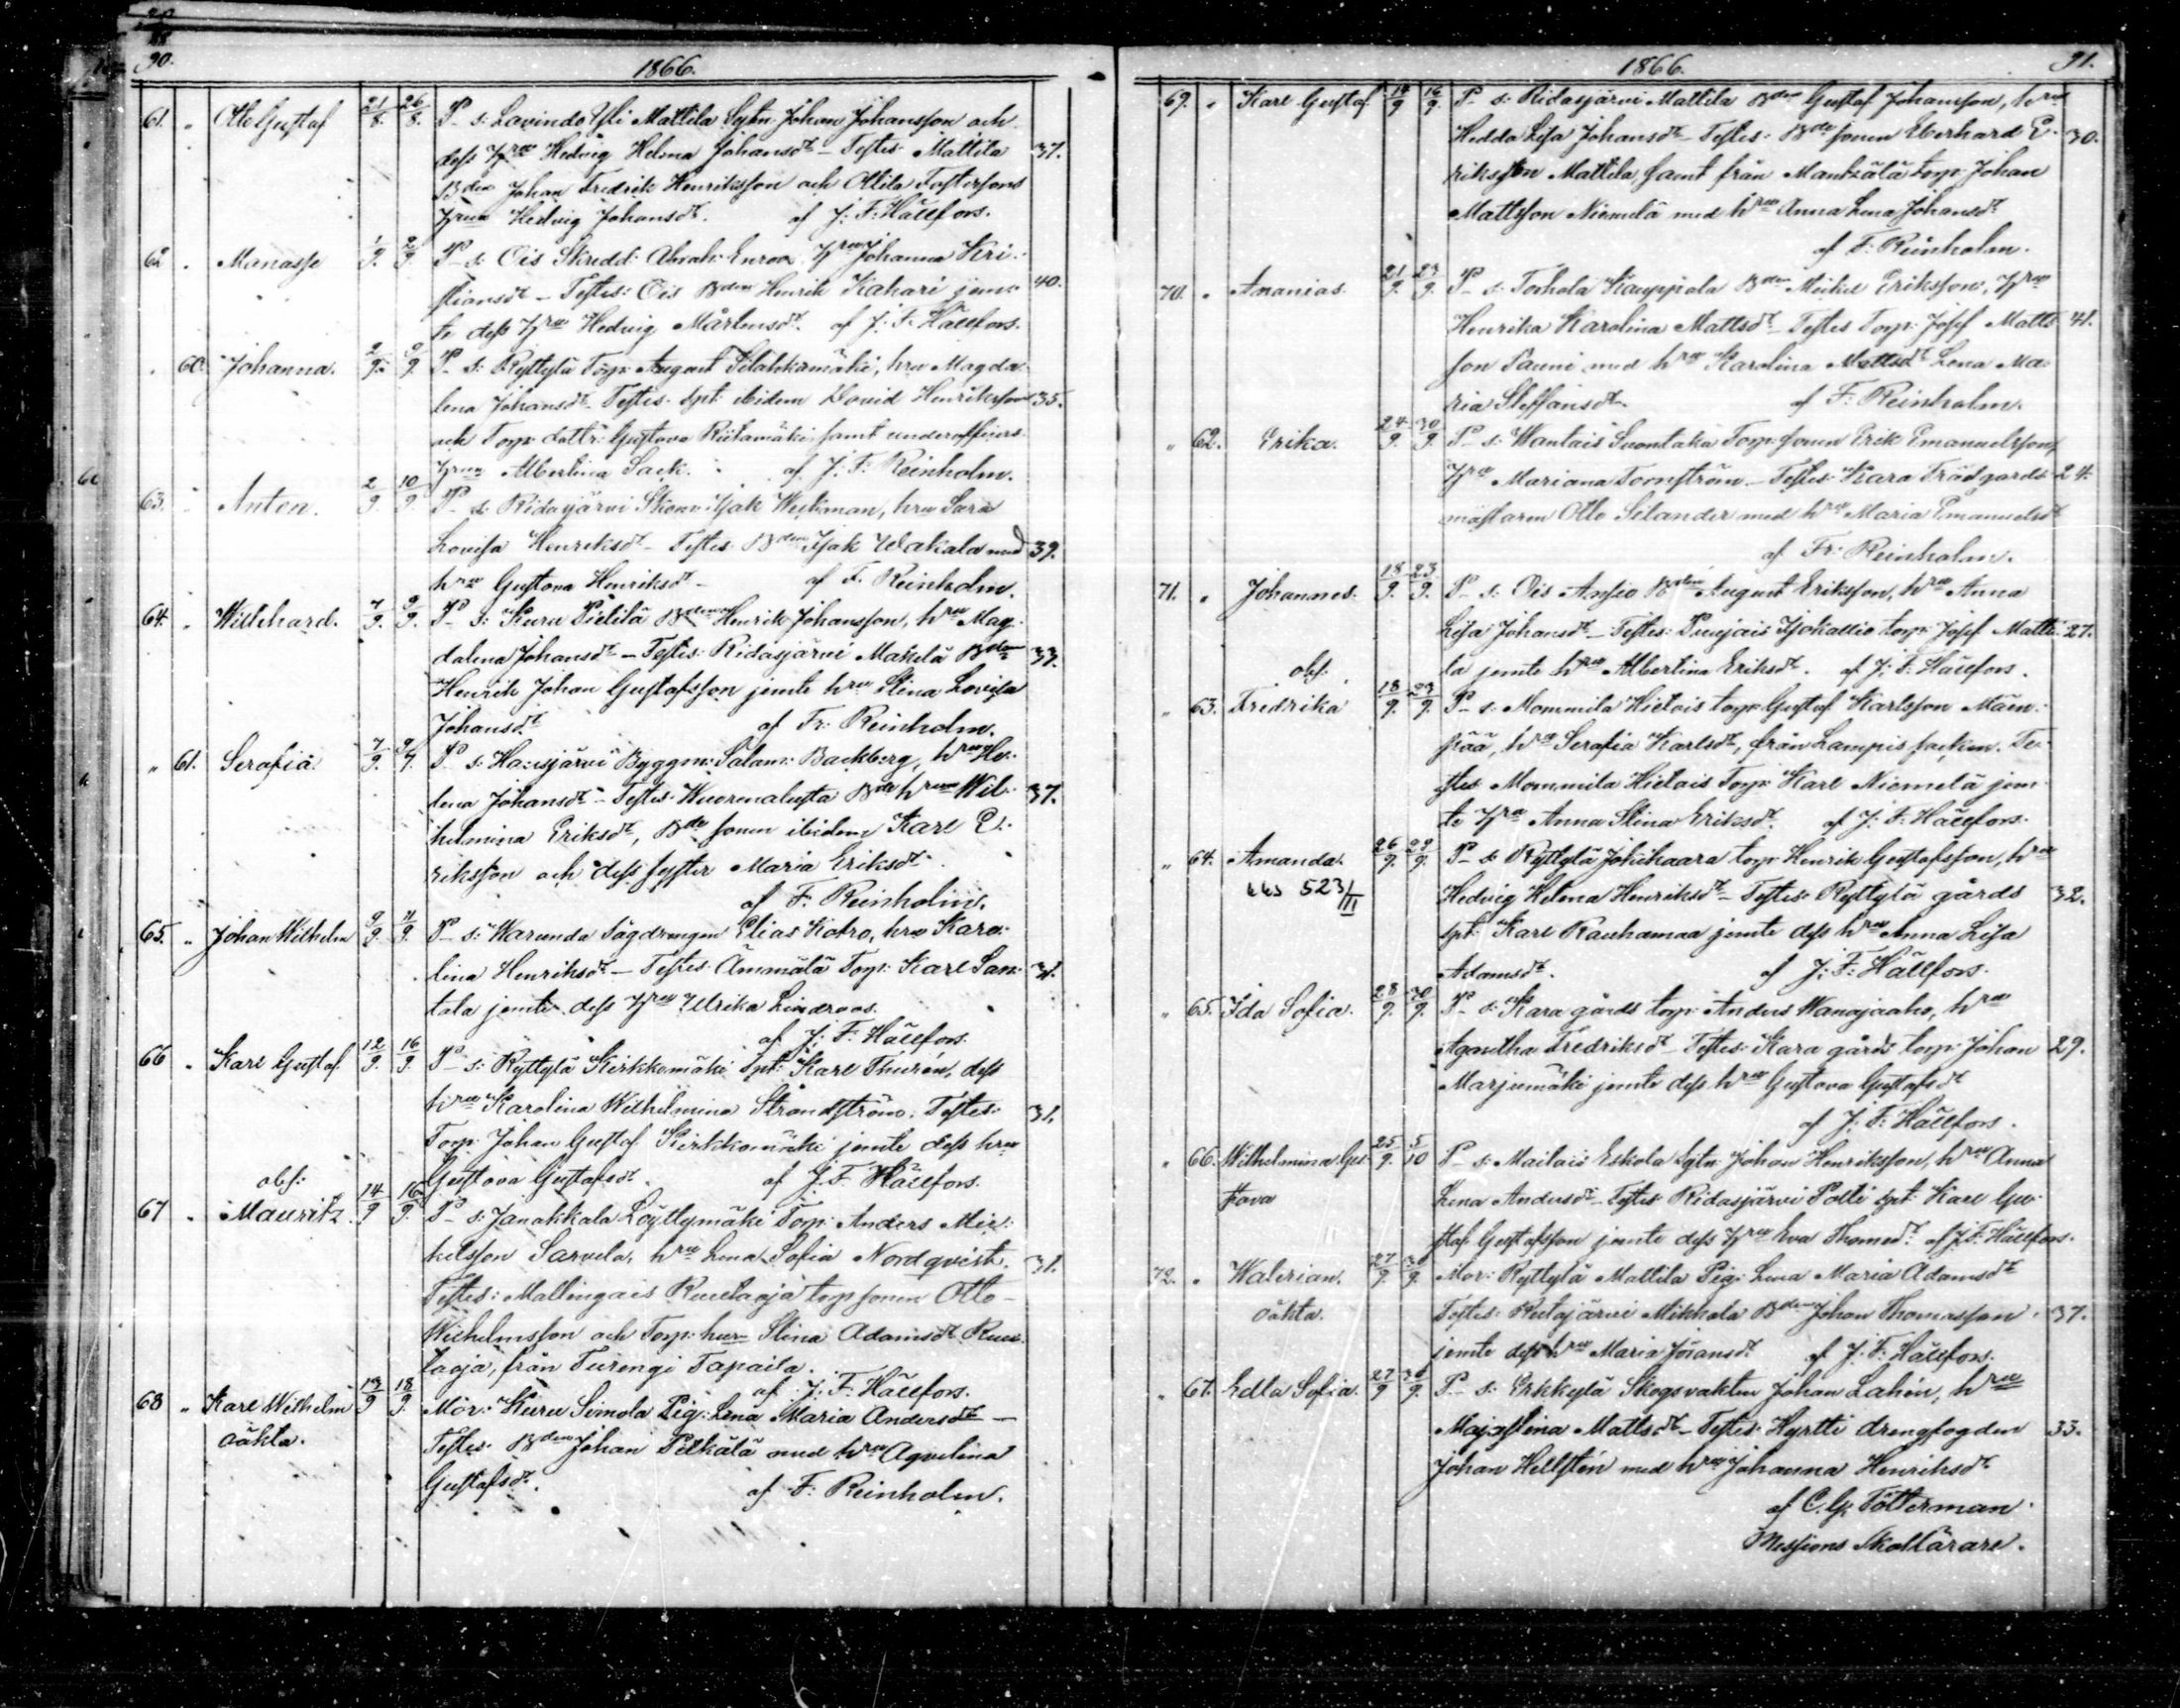 90. 1866.
61. " Otto Gustaf 21/8. 26/8. P_ s: Lavindo Yli Mattila Sytn: Johan Johansson och
dess hru Hedvig Helma Johansdt – Testes: Mattila 37.
Bden Johan Fredrik Henriksson och Ottila
hrun Hedvig Johansdt. af J: F: Hällfors.
62. " Manasse 1/9. 2/9. P_ s: Ois Skredd: Abrah: Enroos hru Johanna Kri-
stiansdt – Testes: Ois Bden Henrik Kahari jem- 40.
te dess hru Hedvig Mårtensdt. af J. F. Hällfors.
" 60. Johanna. 2/9. 9/9. P_ s: Ryttylä Torp: August hru Magda
lena Johansdt – Testes. Spt: ibidem David Henriksson 35.
och Torp: dottr: Gustava Riitamäki samt underofficers
hrun Albertina Sack. af J. F: Reinholm.
63. " Anton. 2/9. 10/9. P_ s: Ridasjärvi Skom: Isak Westman, hru Sara
Lovisa Henriksdt – Testes. Bden Isak Wakala med 39.
hru Gustava Henriksdt – af F. Reinholm.
64. " Willehard. 7/9. 9/9. P_ s: Kuru Pietilä Bden Henrik Johansson, hru Mag-
dalena Johansdt – Testes: Ridasjärvi Mäkelä Bden 33.
Henrik Johan Gustafsson jemte hru Stina Lovisa
Johansdt. af Fr: Reinholm.
" 61. Serafia. 7/9. 9/9. P_ s: Hausjärvi Byggm: Salam: Backberg, hru He-
lena Johansdt – Testes: Wuorenalusta Bde hrun Wil- 37.
helmina Eriksdt, Bde sonen ibidem Karl E-
riksson och dess syster Maria Eriksdt.
af F. Reinholm.
65. " Johan Wilhelm 9/9. 11/9. P_ s: Warunda Sågdrengen Elias Kokro, hru Karo-
lina Henriksdt – Testes: Ämmälä Torp: Karl San-
tala jemte dess hru Ulrika Lindroos.
af J: F: Hällfors.
66 " Karl Gustaf 12/9. 16/9. P_ s: Ryttylä Kirkkomäki Spt: Karl Thurén, dess
hru Karolina Wilhelmina Strandström. Testes: 31.
Torp: Johan Gustaf Kirkkomäki jemte dess hru
Gustava Gustafsdt. af J: F. Hällfors.
obs:
67 " Mauritz. 14/9 16/9. P_ s: Janakkala Löyttymäki Torp: Anders Mic-
helsson Sarvela, hru Lena Sofia Nordqvist. 31.
Testes: Mallingais Ruutaoja torp sonen Otto
Wilhelmsson och Torp: hru Stina Adamsdt Ruu-
taoja, från Turengi Tapaila.
af J: F: Hällfors.
68 " Karl Wilhelm 13/9 18/9. Mor: Kuru Simola Pig: Lena Maria Andersdt –
oäkta. Testes. Bden Johan Pelkälä med hru Aqvelina
Gustafsdt. af F: Reinholm.
1866. 91.
69. " Karl Gustaf 14/9 16/9. P_ s: Ridasjärvi Mattila Bden Gustaf Johansson, hru
Hedda Lisa Johansdt – Testes: Bde sonen Eberhard E- 30.
riksson Mattila, samt från Mantzälä torp: Johan
Mattsson Niemelä med hru Anna Lena Johansdt
af F: Reinholm.
70. " Ananias. 21/9. 23/9. P_ s: Torhola Kauppiala Bden Mickel Eriksson, hru
Henrika Karolina Mattsdt – Testes Torp: Josef Matts 41.
son Pauni med hru Karolina Mattsdt Lena Ma-
ria Steffansdt. af F. Reinholm.
" 62. Erika. 24/9. 30/9. P_ s: Wantais Suontaka Torp: sonen Erik Emanuelsson,
hru Mariana Tornström – Testes Kara Trädgårds 24.
mästaren Otto Selander med hru Maria Emanuelsdt
af Fr: Reinholm.
71. " Johannes. 18/9. 23/9. P_ s: Ois Ansio Bden August Eriksson, hru Anna
Lisa Johansdt – Testes: Puujais Isokallio torp: Josef Matti- 27.
obs: la jemte hru Albertina Eriksdt. af J: F: Hällfors.
" 63. Fredrika 18/9. 23/9. P_ s: Mommila Hietois torp: Gustaf Karlsson Mäen-
pää, hru Serafia Karlsdt, från Lampis socken. Te-
stes Mommila Hietois Torp: Karl Niemelä jem-
te hru Anna Stina Eriksdt. af J: F. Hällfors.
" 64. Amanda. 26/9. 29/9. P_ s: Ryttylä Jokihaara torp Henrik Gustafsson, hru
523/II Hedvig Helena Henriksdt – Testes: Ryttylä gårds 32.
spt: Karl Rauhamaa jemte dess hru Anna Lisa
Adamsdt. af J: F: Hällfors.
" 65. Ida Sofia. 28/9. 30/9. P_ s: Kara gårds torp: Anders Wanajaaho, hru
Agnetha Fredriksdt – Testes: Kara gårds torp: Johan 29.
Marjumäki jemte dess hru Gustava Gustafsdt
af J: F: Hällfors.
" 66. Wilhelmina Gus- 25/9. 5/10 P_ s: Mailais Eskola Sytn: Johan Henriksson, hru Anna
tava Lena Andersdt – Testes: Ridasjärvi Polti spt: Karl Gu-
staf Gustafsson jemte dess hru Eva Thomsdt. af J: F. Hällfors.
72. " Walerian. 27/9. 30/9. Mor: Ryttylä Mattila Pig: Lena Maria Adamsdt
oäkta. Testes: Mikkola Bden Johan Thomasson 37.
jemte dess hru Maria Johansdt. af J: F: Hällfors.
" 67. Edla Sofia. 27/9 30/9. P_ s: Erkkylä Skogsvakten Johan Lahén, hru
Majastina Mattsdt – Testes: Hyrtti drengfogden 33.
Johan Hellstén med hru Johanna Henriksdt
af C. G. Tötterman
Missions Skollärare.